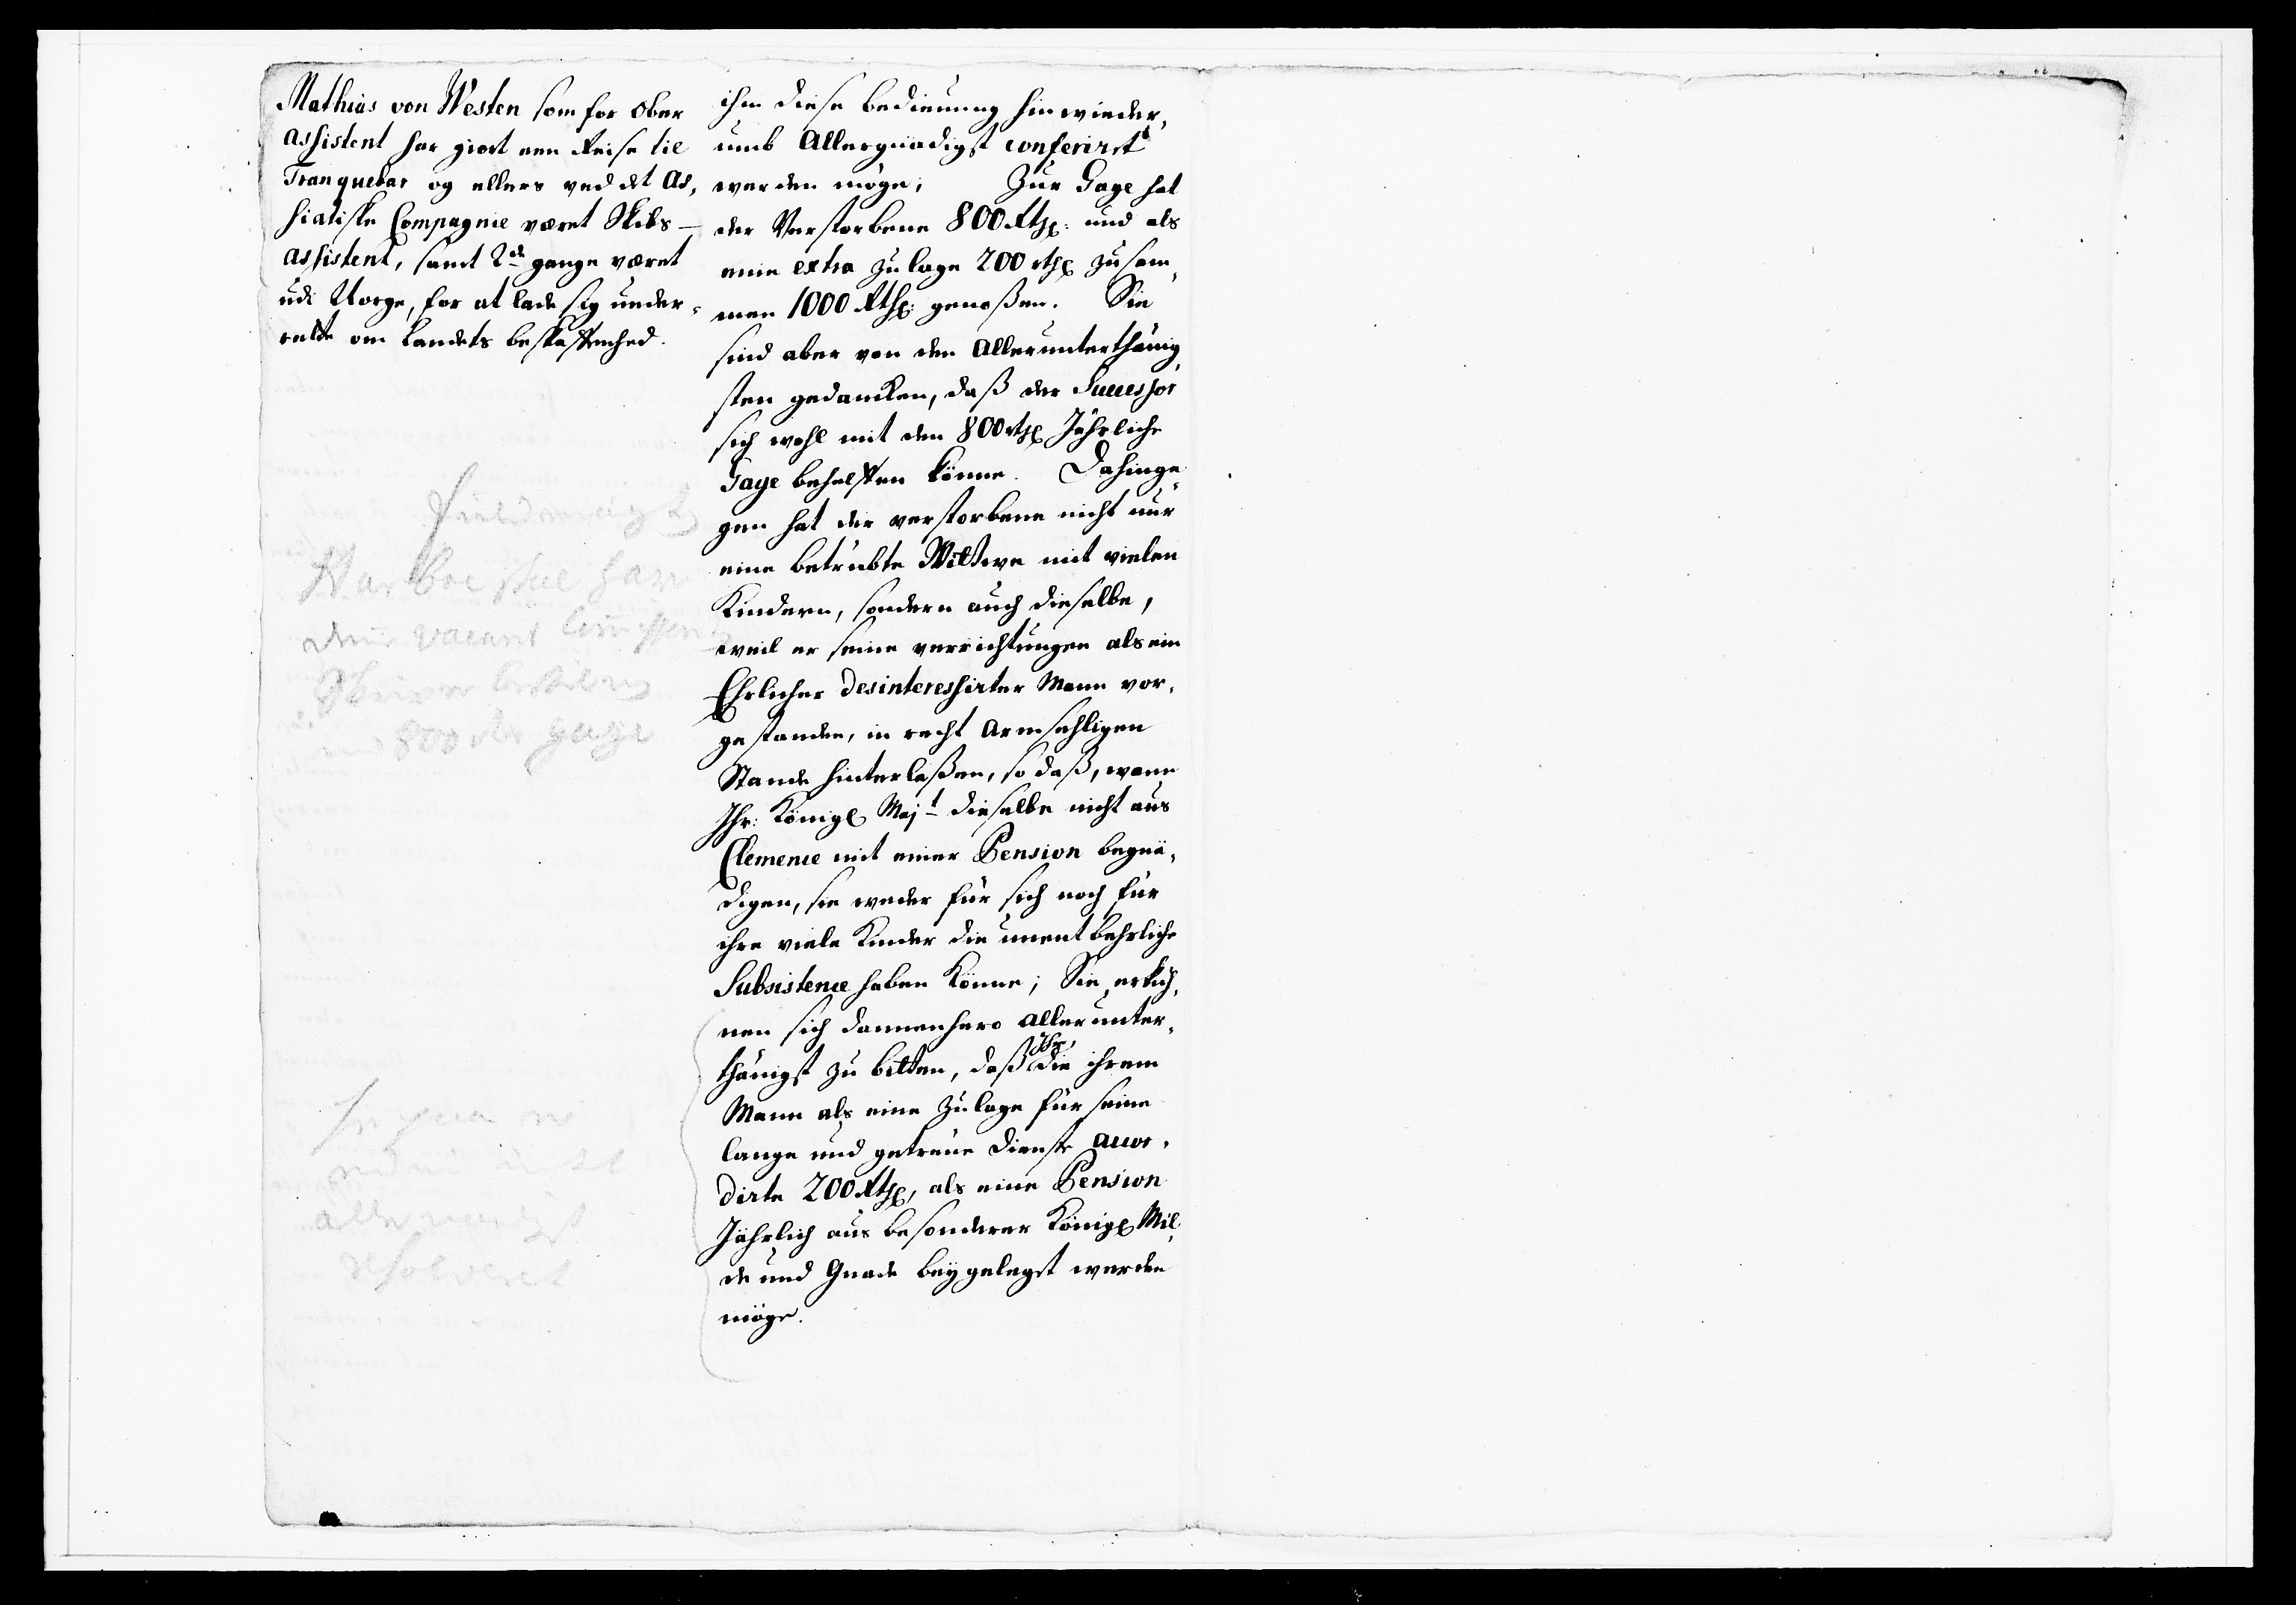 Mathias von Westen som for Ober
Assistent har giort een Reise til
Tranquebar og ellers ved det As,
siatiske Compagnie været Skibs-
Assistent, samt 2de gange været
udi Norge, for at lade sig under,
rette om Landets beskaffenhed.
Har boe skul han
vacant
800 rdr gage
resolveret
ihm diese bedienung hinwieder,
umb Allergnädigst conferirt
werden möge; Zur Gage hat
der Verstorbene 800 Rthl: und als
eine extra Zulage 200 rthl zusam,
men 1000 Rthl: genoßen. Sie
sind aber von den Allerunterthänig,
sten gedancken, daß der Successor
sich wohl mit den 800 rthl Jährliche
Gage behelffen könne. Dahinge,
gen hat der verstorbene nicht nur
eine betrübte Wittwe mit vielen
Kindern, sondern auch dieselbe,
weil er seine verrichtungen als ein
Ehrlicher desinteressirter Mann vor,
gestanden, in recht Armsehligen
Stande hinterlaßen, so daß, wann
Ihr: Königl Majt dieselbe nicht aus
Clemence mit einer Pension begnä,
digen, sie weder für sich noch für
ihre viele Kinder die unentbehrliche
Subsistence haben könne; Sie erküh,
nen sich dannenhero allerunter,
thänigst zu bitten, daß Ihr, die ihrem
Mann als eine Zulage für seine
lange und getreue Dienste accor,
dirte 200 Rthl, als eine Pension
Jährlich aus besonderer Königl Mil,
de und Gnade beygelegt werden
möge.